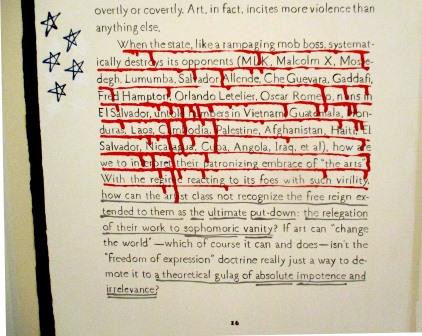 overtly or covertly. Art, in fact, incites more violence than
anything else.
When the state, like a rampaging mob boss, systemat-
ically destroys its opponents (MLK, Malcolm X, Mosse-
degh, Lumumba, Salvador Allende, Che Guevara, Gaddafi,
Fred Hampton, Orlando Letelier, Oscar Romero, nuns in
El Salvador, untold numbers in Vietnam, Guatemala, Hon-
duras, Laos, Cambodia, Palestine, Afghanistan, Haiti, El
Salvador, Nicaragua, Cuba, Angola, Iraq, et al), how are
we to interpret their patronizing embrace of "the arts"?
With the regime reacting to its foes with such virility,
how can the artist class not recognize the free reign ex-
tended to them as the ultimate put-down: the relegation
of their work to sophomoric vanity? If art can "change
the world"—which of course it can and does—isn't the
"freedom of expression" doctrine really just a way to de-
mote it to a theoretical gulag of absolute impotence and
irrelevance?
16